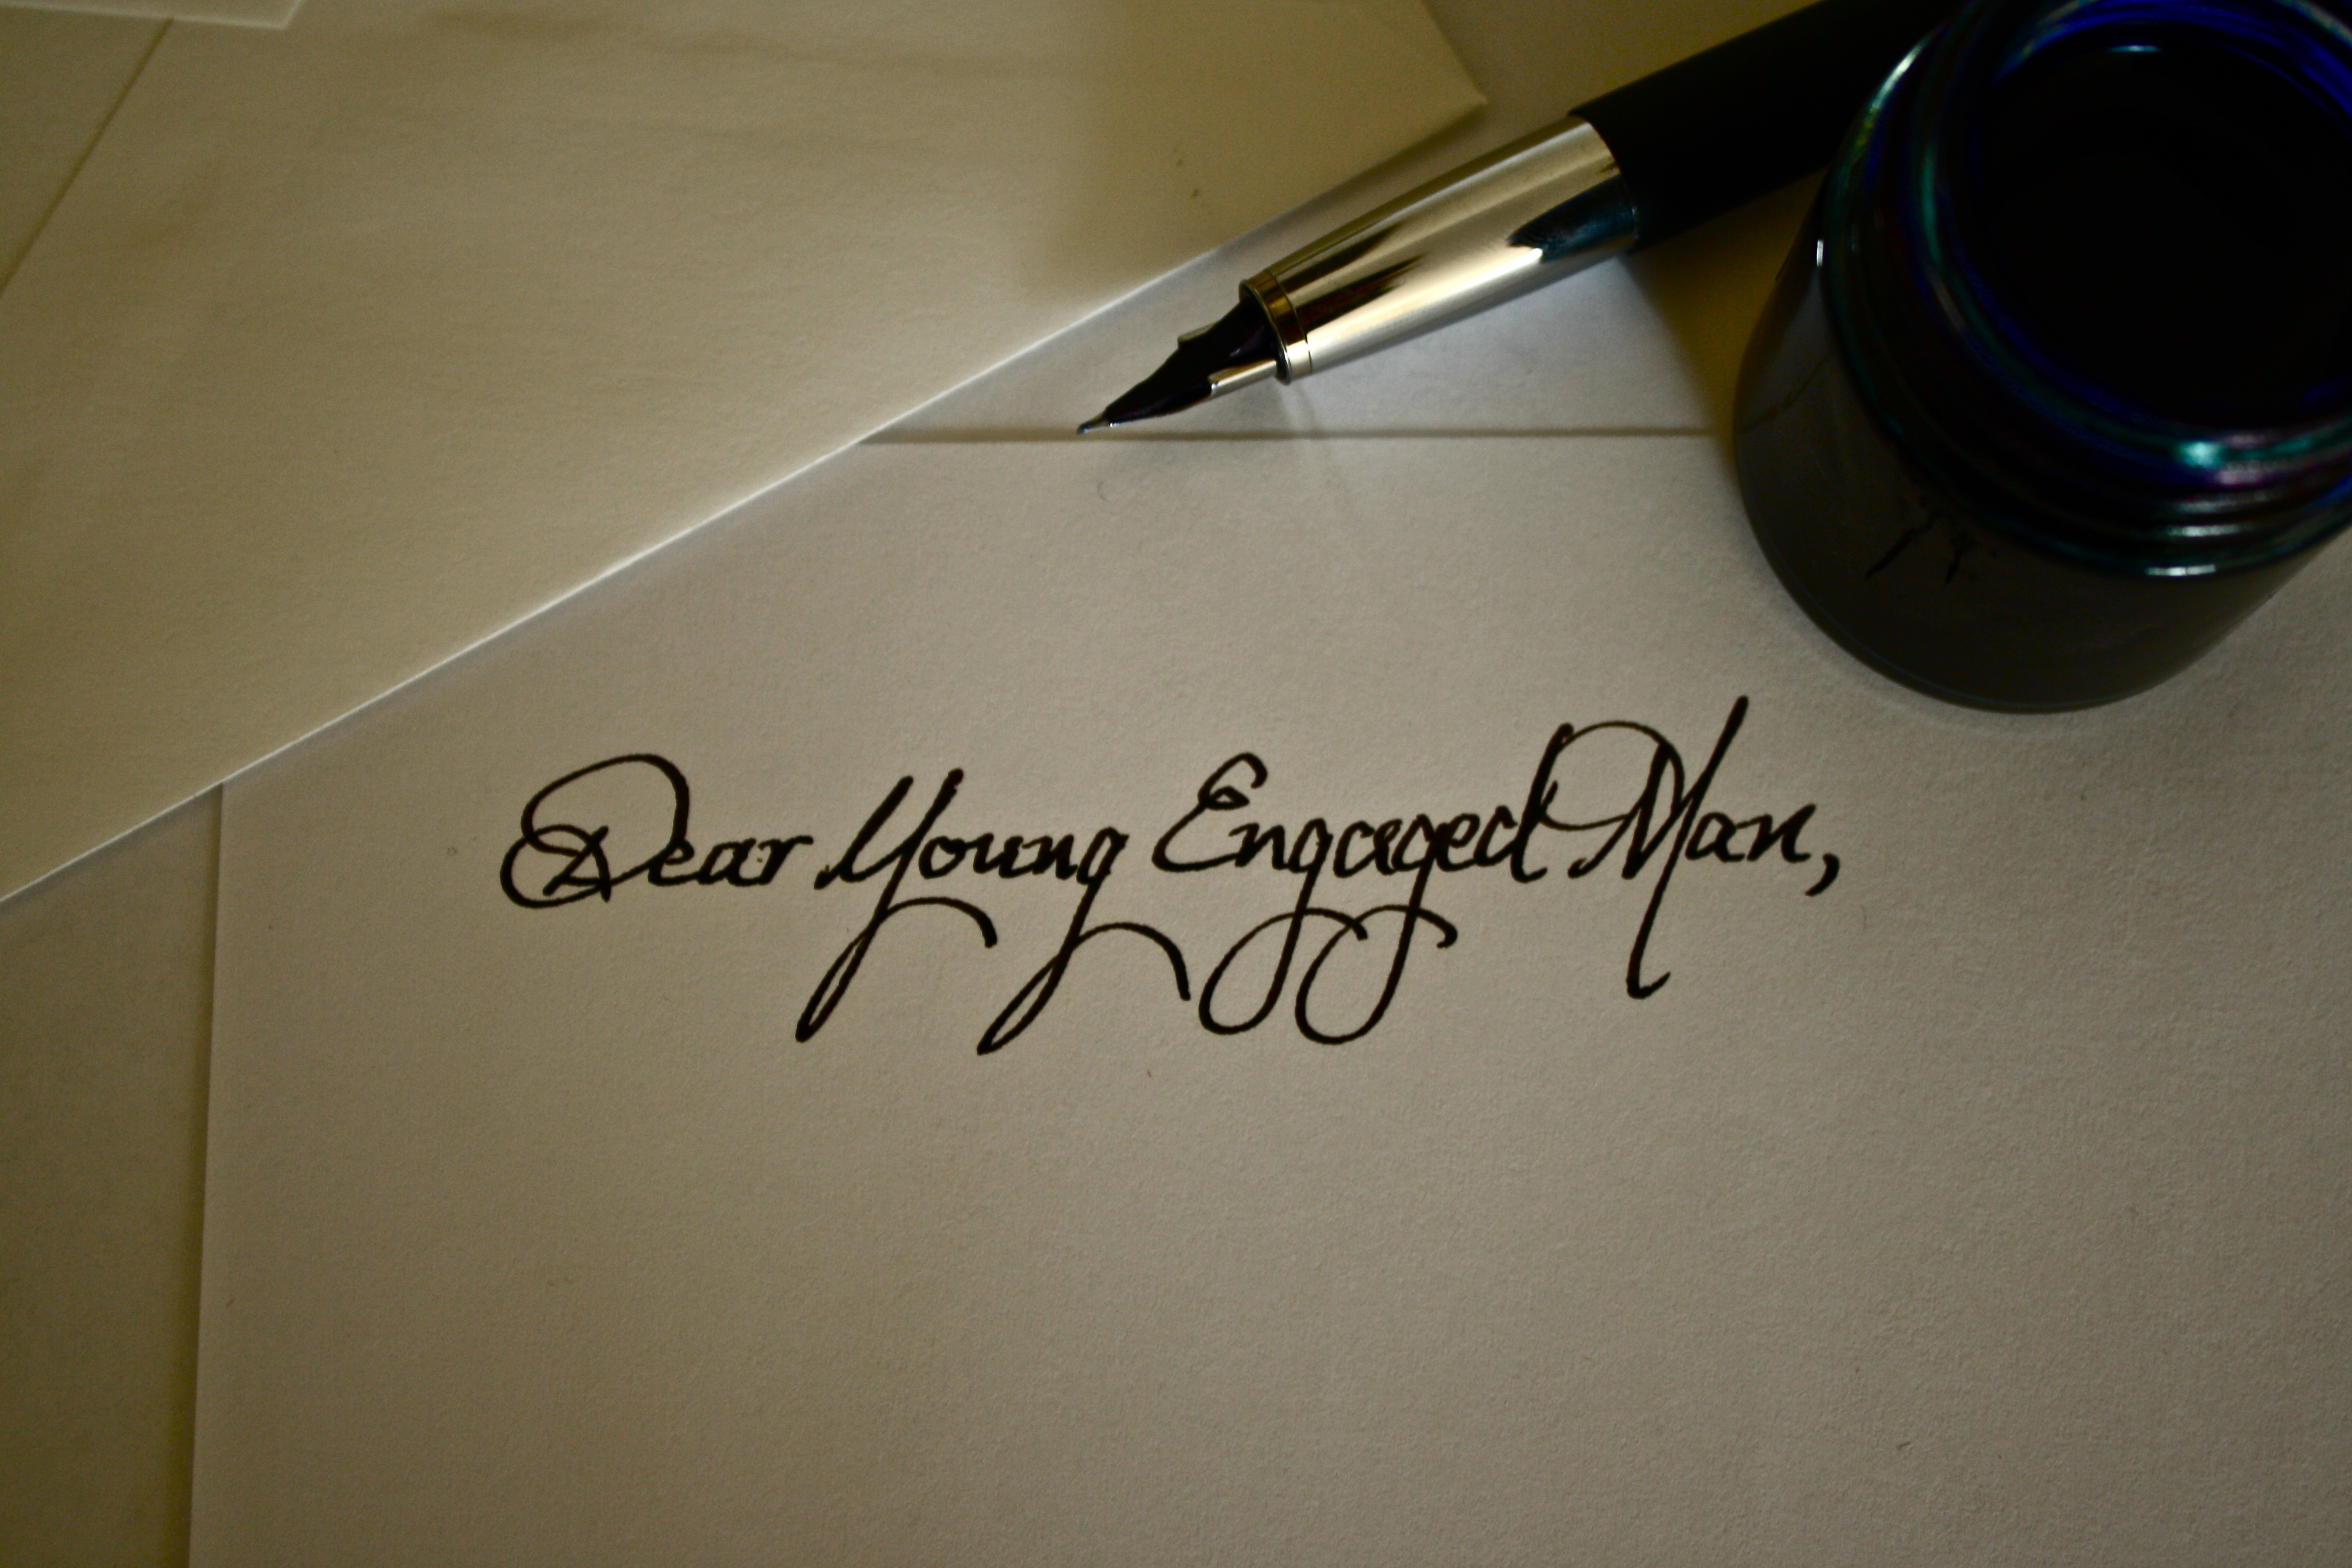 Dear Young Engaged Man,